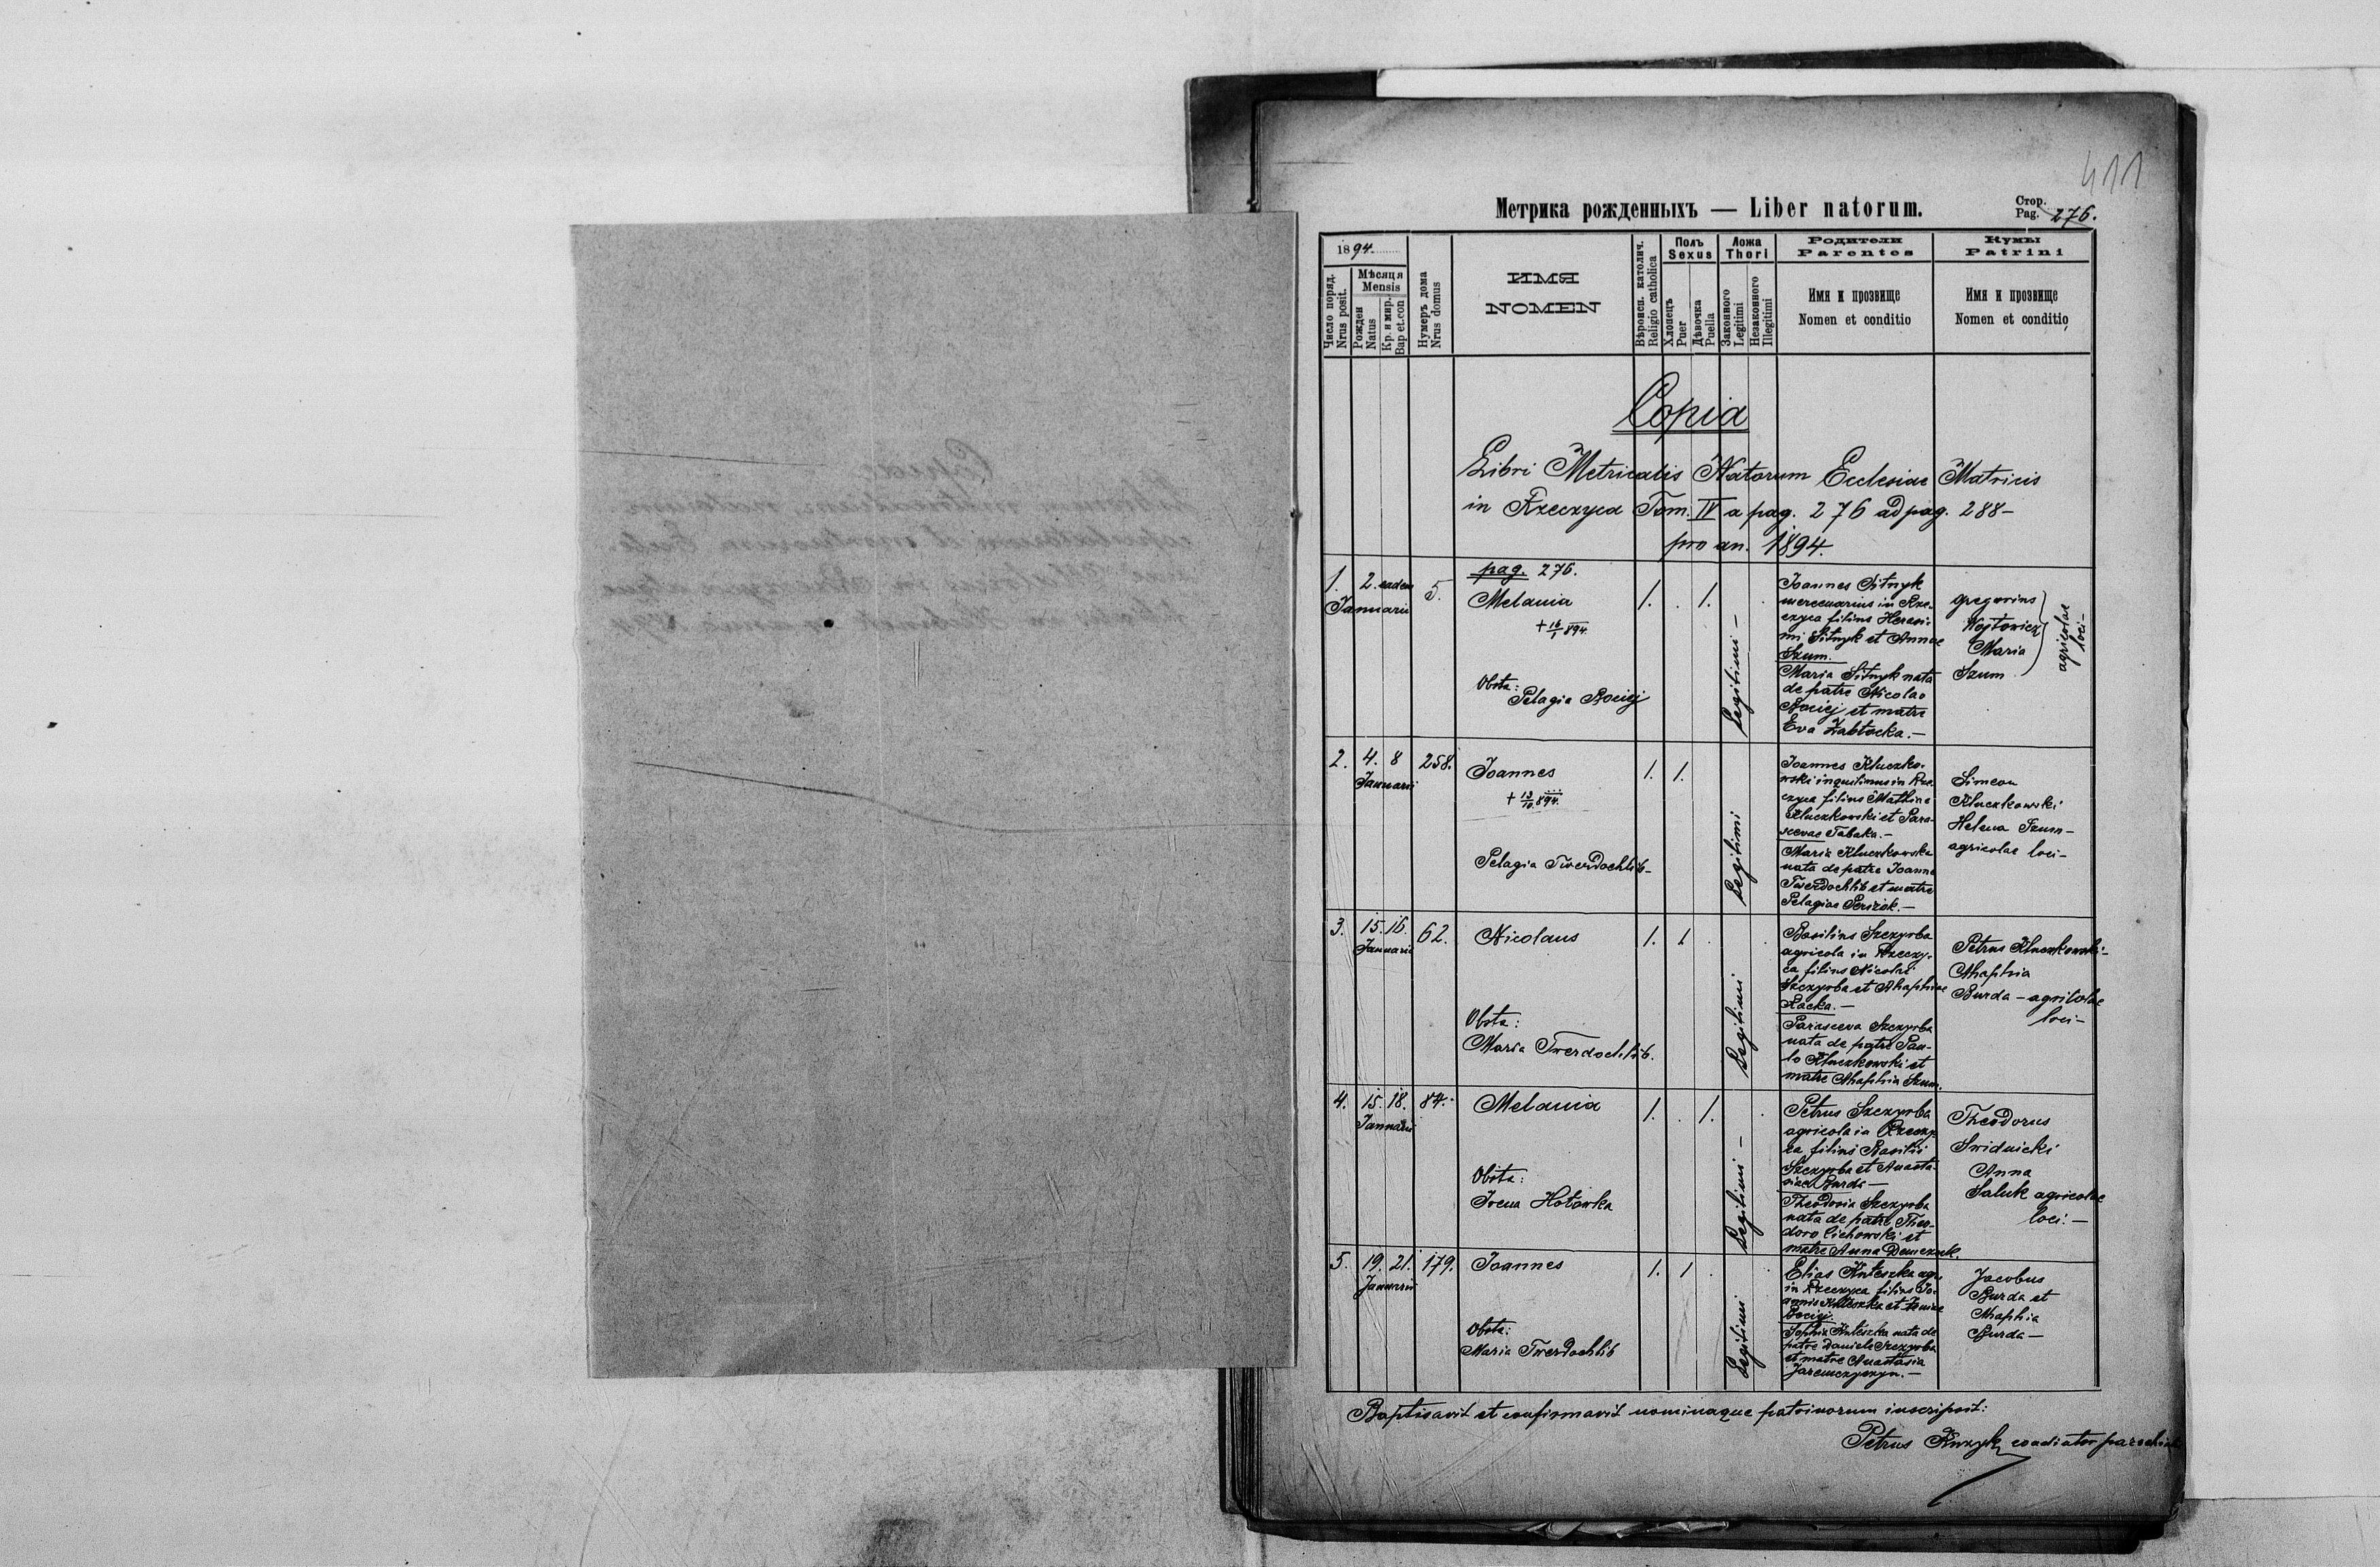 411
Метрика рожденныхъ — Liber natorum.
Стор.
Pag. 276.
1894.
Число поряд.
Nrus posit.
Мѣсяця
Mensis
Рожден
Natus
Кр. и мир.
Bap et.con
Нумеръ дома
Nrus domus
ИМЯ
NOMEN
Вѣроисп. католич.
Religio catholica
Полъ
Sexus
Хлопецъ
Puer
Дѣвочка
Puella
Ложа
Thori
Законного
Legitimi
Незаконного
Illegitimi
Родители
Parentes
Имя и прозвище
Nomen et conditio
Кумы
Patrini
Имя и прозвище
Nomen et conditio
Copia
Libri Metricalis Natorum Ecclesiae Matricis
in Rzeczyca Tom. IV a pag. 276 ad pag. 288-
pro an. 1894.
pag. 276.
1. 2. eadem 5.
Januarii
Melania
+ 16/1 894.
Obsta:
Pelagia Kociej
1. . 1.
Legitimi -
Joannes Sitnyk
mercenarius in Rze-
czyca filius Herasi-
mi Sitnyk et Annae
Szum.
Maria Sitnyk nata
de patre Nicolao
Kociej et matre
Eva Żabłocka.-
Gregorius
Wojtowicz
Maria
Szum
agricolae
loci-
2. 4. 8 258.
Januarii
Joannes
+ 13/10 894.
Pelagia Twerdochlib-
1. 1.
Legitimi
Joannes Kluczko-
wski inquilinus in Rze-
czyca filius Mathiae
Kluczkowski et Para-
scevae Tabaka.-
Maria Kluczkowska
nata de patre Joanne
Twerdochlib et matre
Pelagiae
Simeon
Kluczkowski
Helena Szum-
agricolae loci-
3. 15. 16. 62.
Januarii
Nicolaus
Obsta:
Maria Twerdochlib.
1. 1.
Legitimi
Basilius Szczyrba
agricola in Rzeczy-
ca filius Nicolai
Szczyrba et Ahaphiae
Racka.-
Parasceva Szczyrba
nata de patre Pau-
lo Kluczkowski et
matre Ahaphia Szum.
Petrus Kluczkowski-
Ahaphia
Burda - agricolae
loci-
4. 15. 18. 84.
Januarii
Melania
Obsta:
Irena Hotowka
1. . 1.
Legitimi -
Petrus Szczyrba
agricola in Rzeczy-
ca filius Basilii
Szczyrba et Anasta-
siae Burda-
Theodosia Szczyrba
nata de patre Theo-
doro Cichowski et
matre Anna Demczuk.
Theodorus
Swidnicki
Anna
Saluk agricolae
loci.-
5. 19. 21. 179.
Januarii
Joannes
Obsta:
Maria Twerdochlib
1. 1
Legitimi
Elias Kuteszka agr.
in Rzeczyca filius Jo-
annis Kuteszka et
Kociej.
Sophia Kuteszka nata de
patre Daniele Szczyrba
et matre Anastasia
Jaremczyszyn.-
Jacobus
Burda et
Ahaphia
Burda-
Baptisavit et confirmavit nominaque patrinorum inscripsit:
Petrus coadiutor parochiae